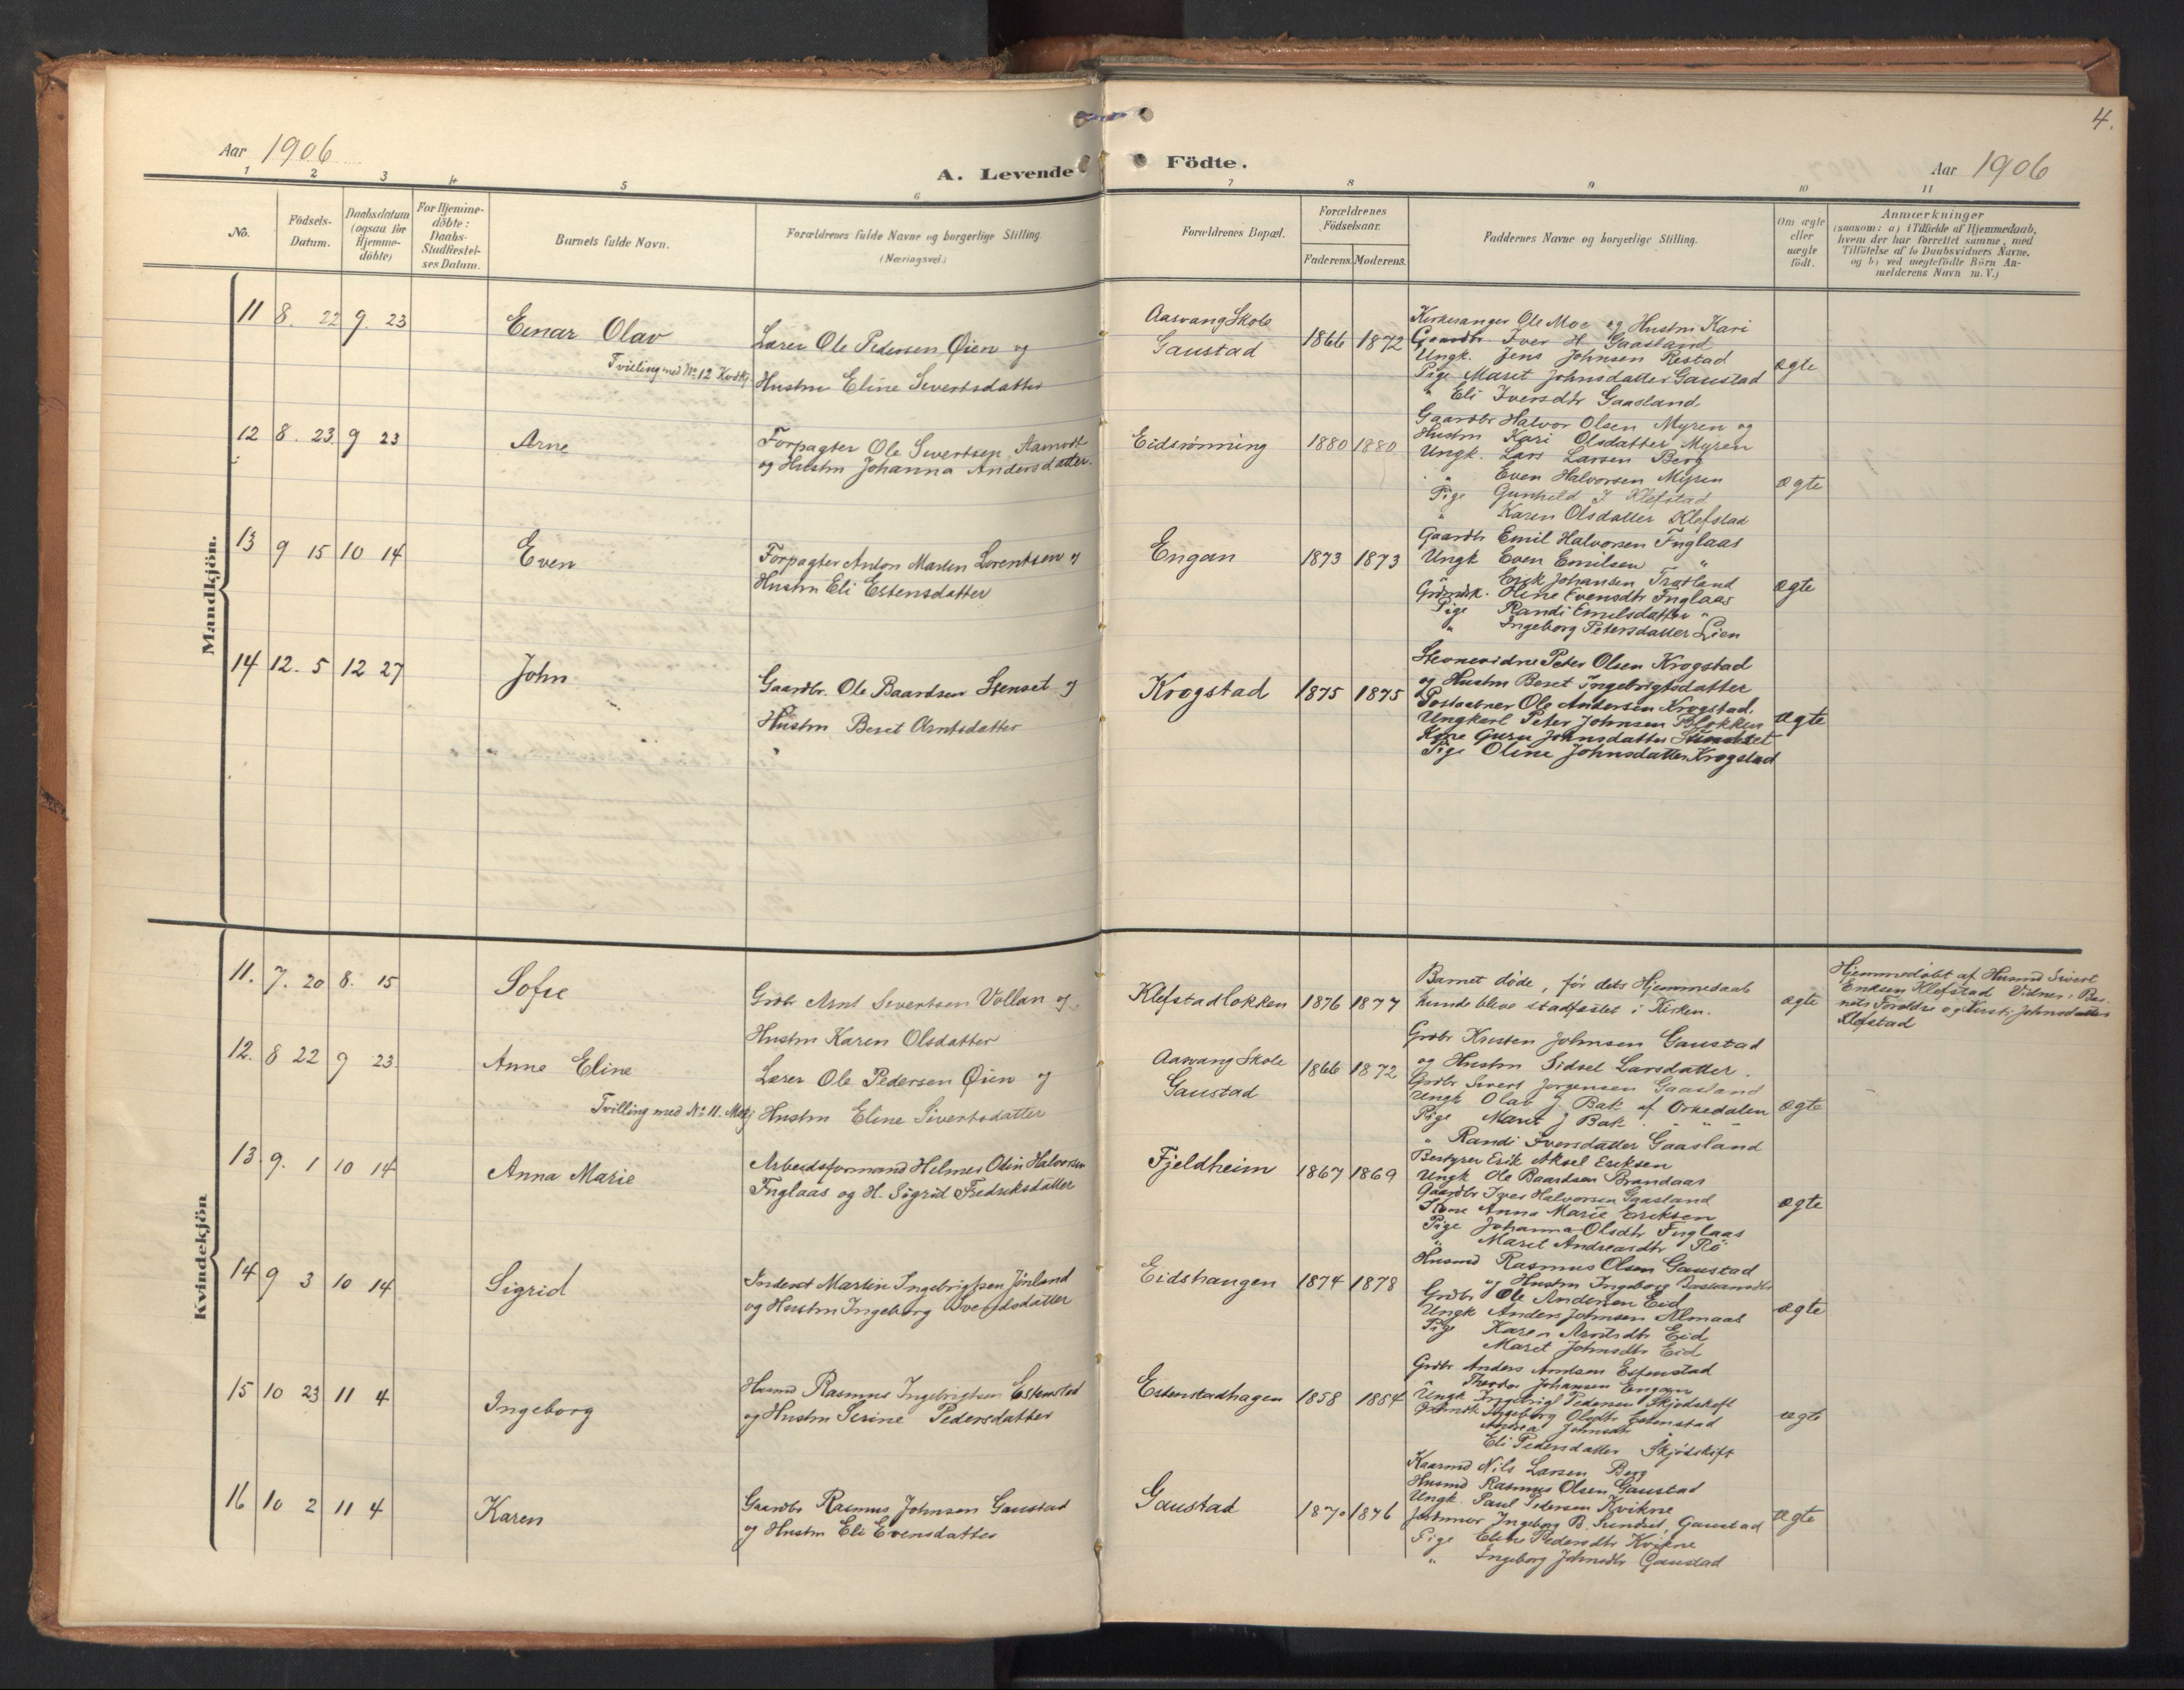 4.
Aar 1906
A. Levende Födte.
Aar 1906
1 2 3 4 5 6 7 8 9 10 11
No.
Födsels-
Datum.
Daabsdatum
(ogsaa for
Hjemme-
döbte)
For Hjemme-
döbte:
Daabs-
Stadfæstel-
ses Datum.
Barnets fulde Navn.
Forældrenes fulde Navne og borgerlige Stilling
(Næringsvei.)
Forældrenes Bopæl.
Forældrenes
Födselsaar.
Faderens. Moderens.
Faddernes Navne og borgerlige Stilling.
Om ægte
eller
uægte
födt.
Anmærkninger
(saasom: a) i Tilfælde af Hjemmedaab,
hvem der har forrettet samme, med
Tilföielse af to Daabsvidners Navne,
og b) ved uegtefödte Börn An-
melderens Navn m. V.)
Mandkjön.
11 8. 22 9. 23
Einar Olav
Tvilling med No 12 Kvdkj
Lærer Ole Pedersen Øien og
Hustru Eline Sivertsdatter
Aasvang Skole
Gaustad
1866 1872
Kirkesanger Ole Moe og Hustru Kari
Gaardbr. Iver H. Gaasland
Ungk. Jens Johnsen Restad
Pige Marit Johnsdatter Gaustad
" Eli Iversdtr Gaasland.
ægte
12 8. 23. 9 23
Arne
Forpagter Ole Sivertsen Aamodt
og Hustru Johanna Andersdatter.
Eidsrønning
1880 1880
Gaardbr Halvor Olsen Myren og
Hustru Kari Olsdatter Myren
Ungk. Lars Larsen Berg
" Even Halvorsen Myren
Pige Gunhild J. Klefstad
" Karen Olsdatter Klefstad
ægte
13 9 15 10 14
Even
Forpagter Anton Martin Lorentsen og
Hustru Eli Estensdatter
Engan
1873 1873
Gaardbr Emil Halvorsen Fuglaas
Ungk Even Emilsen "
" Erik Johansen Trotland
Grdmdsk. Oline Evensdtr Fuglaas
Pige Randi Emilsdatter "
" Ingeborg Petersdatter Lien
ægte
14 12. 5 12 27
John
Gaardbr. Ole Baardsen Stenset og
Hustru Beret Arntsdatter
Krogstad
1875 1875
Stevnevidne Peter Olsen Krogstad
og Hustru Beret Ingebrigtsdatter
Postaabner Ole Andersen Krogstad.
Ungkarl Peter Johnsen Blokken
Kone Guru Johnsdatter
Pige Oline Johnsdatter Krogstad
ægte
Kvindekjön
11. 7. 20 8. 15
Sofie
Grdbr Arnt Sivertsen Vollan og
Hustru Karen Olsdatter
Klefstadlokken
1876 1877
Barnet døde, før dets Hjemmedaab
kunde blive stadfæstet i Kirken.
ægte
Hjemmedøbt af Husmd Sivert
Eriksen Klefstad Vidner: Bar-
nets Forældre og Kersti Johnsdatter
Klefstad
12. 8 22 9 23.
Anne Eline
Tvilling med No 11. Mdkj
Lærer Ole Pedersen Øien og
Hustru Eline Sivertsdatter
Aasvang Skole
Gaustad
1866 1872
Grdbr Kristen Johnsen Gaustad
og Hustru Sidsel Larsdatter.
Grdbr Sivert Jørgensen Gaasland
Ungk Olav J. Bak af Orkedalen
Pige Marit J Bak " " "
" Randi Iversdatter Gaasland
ægte
13. 9. 1 10 14
Anna Marie
Arbeidsformand Helmer Odin Halvorsen
Fuglaas og H. Sigrid Fredriksdatter
Fjeldheim
1867 1869
Bestyrer Erik Aksel Eriksen
Ungk Ole Baardsen Brandaas
Gaardbr Iver Halvorsen Gaasland
Kone Anna Marie Eriksen
Pige Johanna Olsdtr Fuglaas
" Marit Andreasdtr Rø
ægte
14 9 3 10 14
Sigrid
Inderst Martin Ingebrigtsen Jönland
og Hustru Ingeborg Svendsdatter
Eidshaugen
1874 1878
Husmd Rasmus Olsen Gaustad
og Hustru Ingeborg
Grdbr Ole Andersen Eid
Ungk Anders Johnsen Almaas
Pige Karen Arntsdtr Eid
Marit Johnsdtr Eid
ægte
15 10 23 11 4
Ingeborg
Husmd Rasmus Ingebrigtsen Estenstad
og Hustru Serine Pedersdatter
Estenstadhagen
1858 1864
Grdbr Anders Arntsen Estenstad
" Theodor Johansen Engan
Ungk Ingebrigt Pedersen Skjødskift
Grdmdsk Ingeborg Olsdtr Estenstad
Andrea Johnsdtr "
Eli Pedersdatter Skjødskift
ægte
16 10 2 11 4
Karen
Gaardbr Rasmus Johnsen Gaustad
og Hustru Eli Evensdatter
Gaustad
1870 1876
Kaarmd Nils Larsen Berg
Husmd Rasmus Olsen Gaustad
Ungk. Paul Pedersen Kvikne
Jordmor Ingeborg B. Sundset, Gaustad
Pige Eline Pedersdtr Kvikne
" Ingeborg Johnsdtr Gaustad
ægte